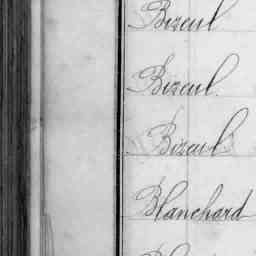 Bizeul
Bizeul
Bizeul
Blanchard